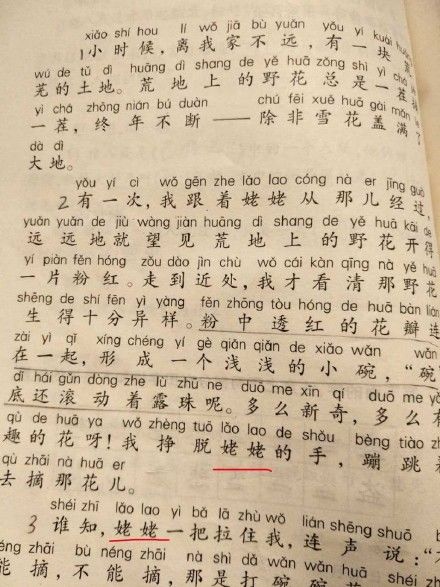 xiǎo shí hou lí wǒ jiā bù yuǎn yǒu yí kuài
1小时候，离我家不远，有一块
wú de tǔ dì huāng dì shang de yě huā zǒng shì yì chá
芜的土地。荒地上的野花总是一茬
yì chá zhōng nián bú duàn chú fēi xuě huā gài mǎn
一茬，终年不断——除非雪花盖满了
dà dì
大地。
yǒu yí cì wǒ gēn zhe lǎo lao cóng nà er jīng guò
2有一次，我跟着姥姥从那儿经过，
yuǎn yuǎn de jiù wàng jiàn huāng dì shang de yě huā kāi de
远远地就望见荒地上的野花开得
yí piàn fěn hóng zǒu dào jìn chù wǒ cái kàn qīng nà yě huā
一片粉红。走到近处，我才看清那野花
shēng de shí fēn yì yàng fěn zhōng tòu hóng de huā bàn lián
生得十分异样。粉中透红的花瓣连
zài yì qǐ xíng chéng yí gè qiǎn qiǎn de xiǎo wǎn wǎn
在一起，形成一个浅浅的小碗，“碗”
dǐ hái gǔn dòng zhe lù zhū ne duō me xīn qí duō me yǒu
底还滚动着露珠呢。多么新奇，多么有
qù de huā ya wǒ zhèng tuō lǎo lao de shǒu bèng tiào zhe
趣的花呀！我挣脱姥姥的手，蹦跳着
qù zhāi nà huā er
去摘那花儿。
shéi zhī lǎo lao yì bǎ lā zhù wǒ lián shēng shuō
3谁知，姥姥一把拉住我，连声说：“
néng zhāi bù néng zhāi nà shì dǎ wǎn wǎn huā
能摘，不能摘，那是打碗碗花